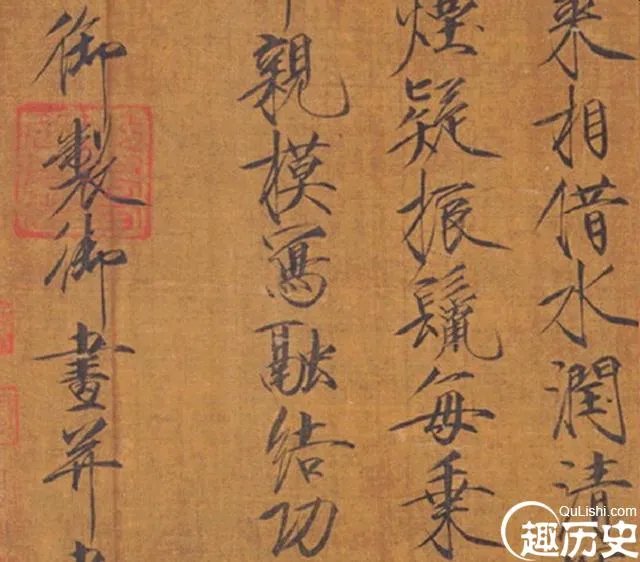 來相借水潤清
煙疑振鬣每乘
親模寫融結功
御製御畫并
QuLishi.com
趣历史